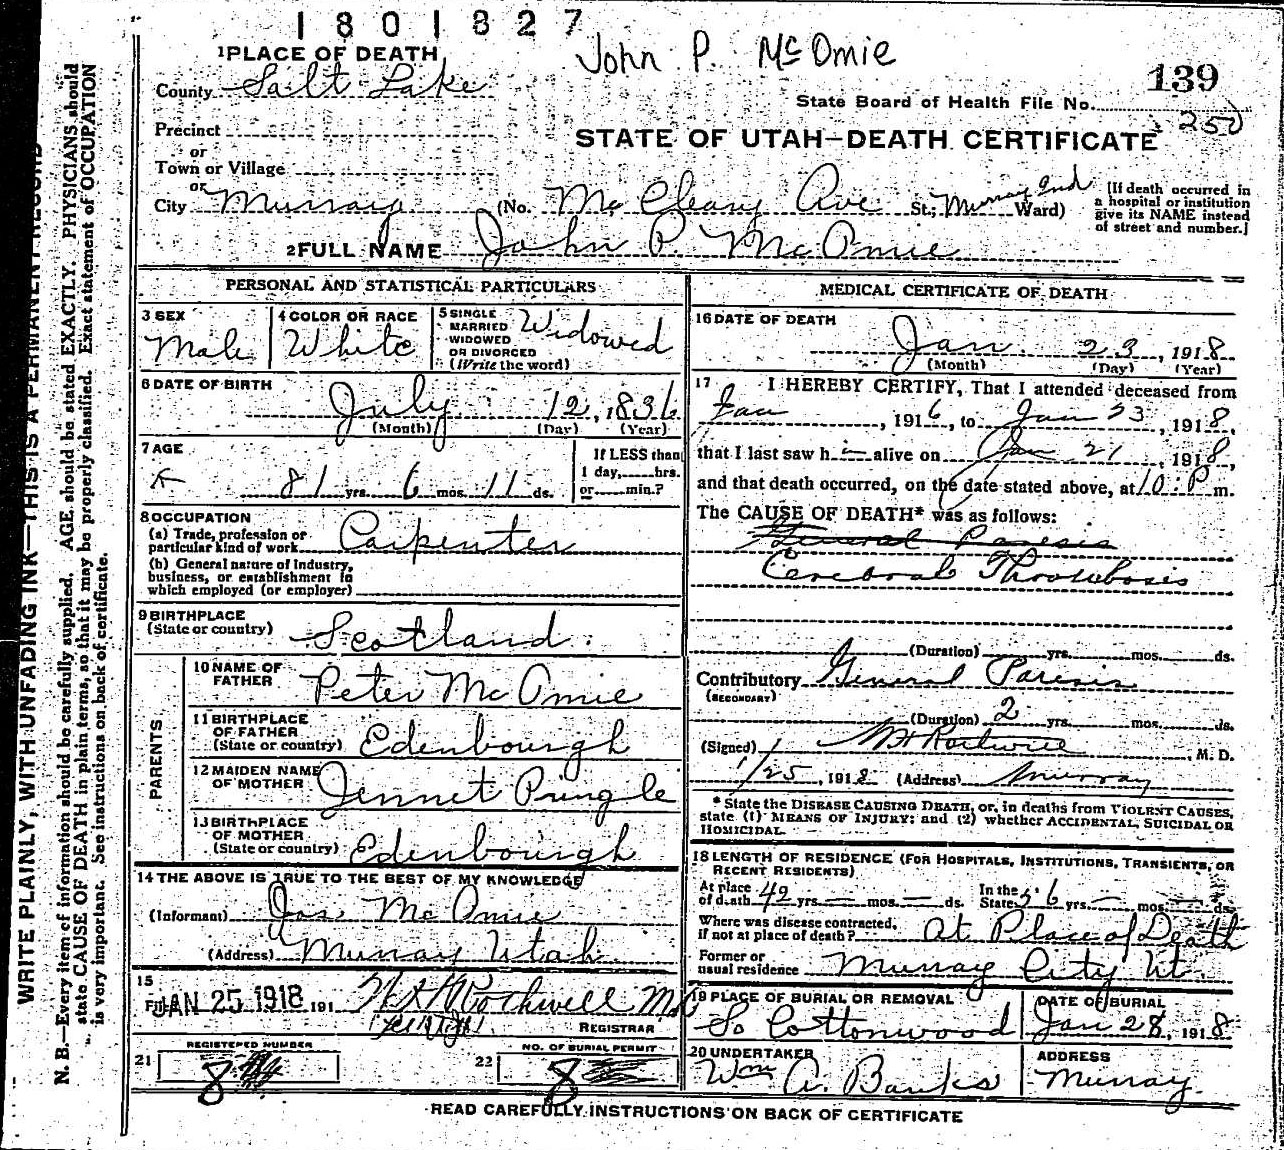 1801827
John P. McOmie
139
State Board of Health File No. 250
STATE OF UTAH—DEATH CERTIFICATE
1 PLACE OF DEATH
County Salt Lake
Precinct
or
Town or Village
or
City Murray (No. McCleary Ave St.; Murray 2nd Ward)
[If death occurred in
a hospital or institution
give its NAME instead
of street and number.]
2 FULL NAME John P. McOmie
PERSONAL AND STATISTICAL PARTICULARS
3 SEX Male
4 COLOR OR RACE White
5 SINGLE
MARRIED
WIDOWED
OR DIVORCED
(Write the word) Widowed
6 DATE OF BIRTH
July 12, 1836
(Month) (Day) (Year)
7 AGE
81 yrs. 6 mos. 11 ds.
If LESS than
1 day,......hrs.
or......min.?
8 OCCUPATION
(a) Trade, profession or
particular kind of work Carpenter
(b) General nature of Industry,
business, or establishment in
which employed (or employer)
9 BIRTHPLACE
(State or country) Scotland
PARENTS
10 NAME OF
FATHER Peter McOmie
11 BIRTHPLACE
OF FATHER
(State or country) Edenbourgh
12 MAIDEN NAME
OF MOTHER Jennet Pringle
13 BIRTHPLACE
OF MOTHER
(State or country) Edenbourgh
14 THE ABOVE IS TRUE TO THE BEST OF MY KNOWLEDGE
(Informant) Jas McOmie
(Address) Murray Utah
15
Filed JAN 25 1918 191 Rockwell M.D.
REGISTRAR
21 REGISTERED NUMBER
8
22 NO. OF BURIAL PERMIT
8
MEDICAL CERTIFICATE OF DEATH
16 DATE OF DEATH
Jan 23, 1918
(Month) (Day) (Year)
17 I HEREBY CERTIFY, That I attended deceased from
Jan, 1916, to Jan 23, 1918,
that I last saw h i— alive on Jan 21, 1918,
and that death occurred, on the date stated above, at 10:P m.
The CAUSE OF DEATH* was as follows:
General Paresis
Cerebral Thrombosis
(Duration) yrs. mos. ds.
Contributory General Paresis
(SECONDARY)
(Duration) 2 yrs. mos. ds.
(Signed) , M. D.
1/25, 1918 (Address) Murray
* State the DISEASE CAUSING DEATH, or, in deaths from VIOLENT CAUSES,
state (1) MEANS OF INJURY; and (2) whether ACCIDENTAL, SUICIDAL OR
HOMICIDAL.
18 LENGTH OF RESIDENCE (FOR HOSPITALS, INSTITUTIONS, TRANSIENTS, OR
RECENT RESIDENTS)
At place
of death 42 yrs. — mos. — ds.
In the
State 56 yrs. — mos. — ds.
Where was disease contracted,
if not at place of death? At Place of Death
Former or
usual residence Murray City Ut
19 PLACE OF BURIAL OR REMOVAL
So Cottonwood
DATE OF BURIAL
Jan 28, 1918
20 UNDERTAKER
Wm A. Banks
ADDRESS
Murray
READ CAREFULLY INSTRUCTIONS ON BACK OF CERTIFICATE
WRITE PLAINLY, WITH UNFADING INK—THIS IS A PERMANENT RECORD
N. B.—Every item of information should be carefully supplied. AGE should be stated EXACTLY. PHYSICIANS should
state CAUSE OF DEATH in plain terms, so that it may be properly classified. Exact statement of OCCUPATION
is very important. See instructions on back of certificate.